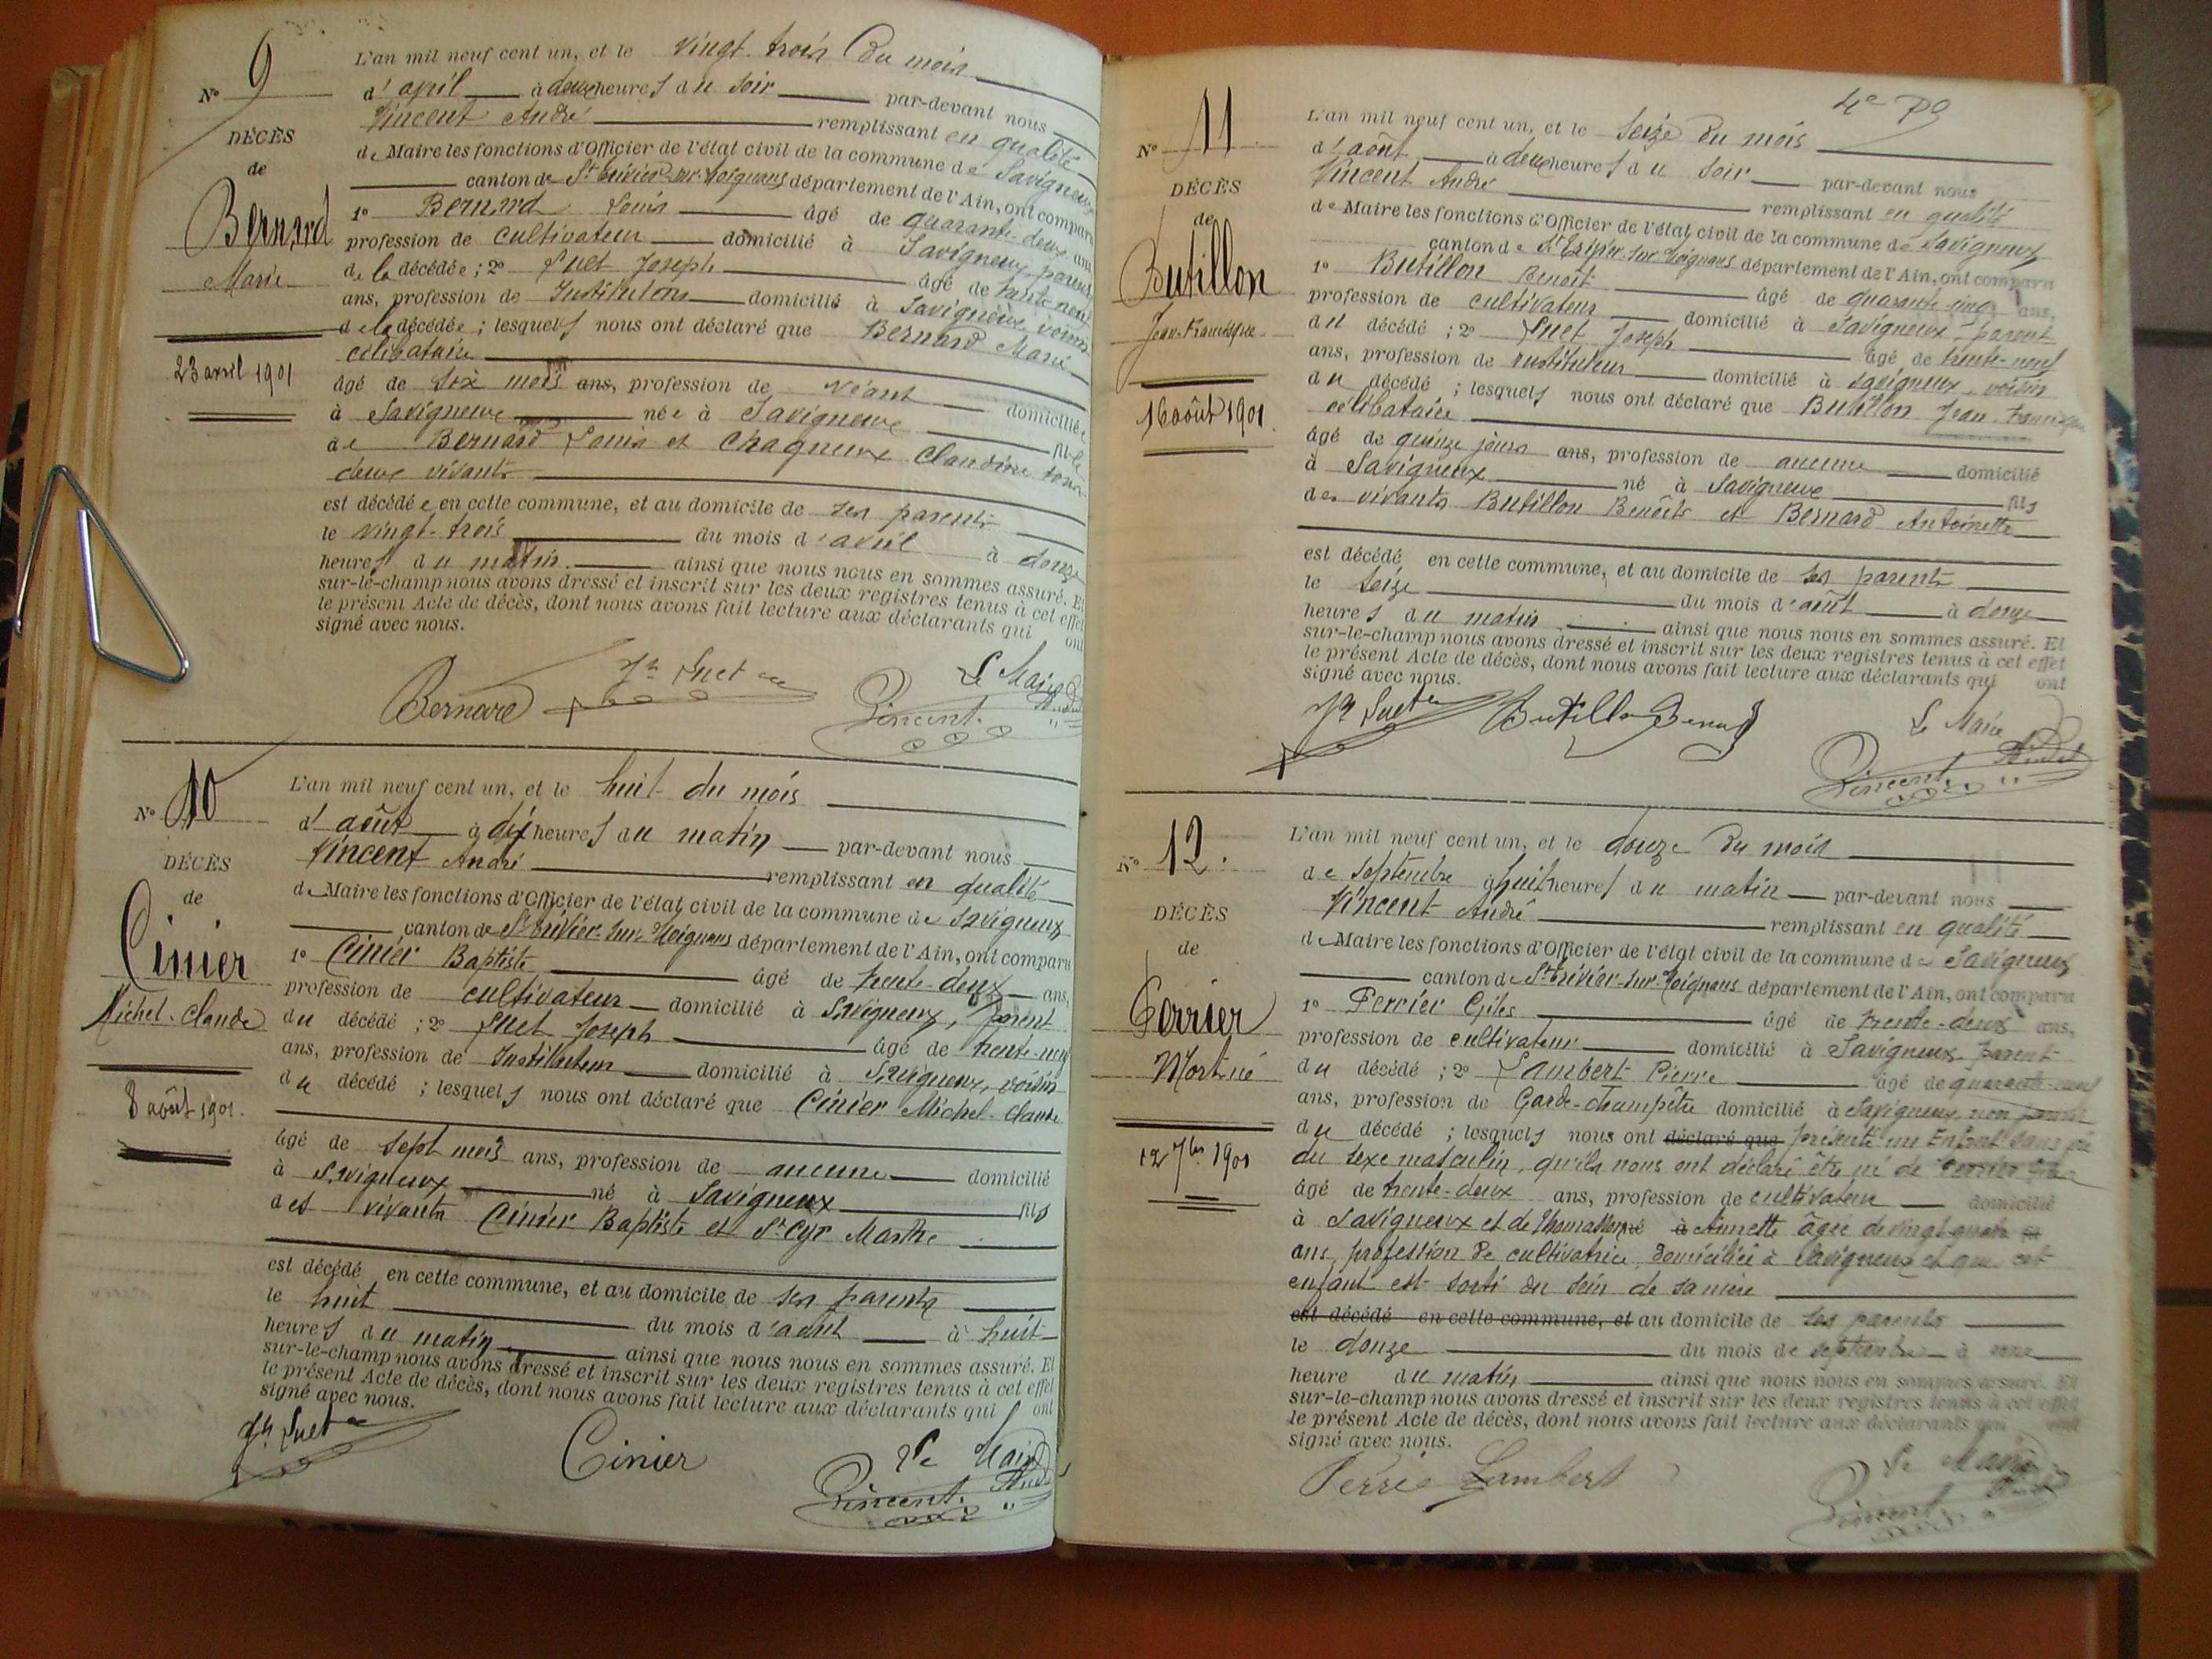 N° 9
DÉCÈS
de
Bernard
Marie
23 avril 1901
L'an mil neuf cent un, et le vingt-trois du mois
d'april à deux heures du soir par-devant nous
Vincent André remplissant en qualité
de Maire les fonctions d'Officier de l'état civil de la commune de Savigneux
canton de St Trivier-sur-Moignans département de l'Ain, ont comparu
1° Bernard Louis âgé de quarante-deux ans
profession de cultivateur domicilié à Savigneux, parent
de la décédée; 2° Suet Joseph âgé de trente neuf
ans, profession de Instituteur domicilié à Savigneux, voisin
de la décédée; lesquels nous ont déclaré que Bernard Marie
célibataire
âgé de six mois ans, profession de néant domiciliée
à Savigneux née à Savigneux fille
de Bernard Louis et Chagneux Claudine tous
deux vivants
est décédée en cette commune, et au domicile de ses parents
le vingt-trois du mois d'avril à douze
heures du matin ainsi que nous nous en sommes assuré. Et
sur-le-champ nous avons dressé et inscrit sur les deux registres tenus à cet effet
le présent Acte de décès, dont nous avons fait lecture aux déclarants qui ont
signé avec nous.
Bernard Jh Suet Le Maire
Vincent André
N° 10
DÉCÈS
de
Cinier
Michel-Claude
8 août 1901.
L'an mil neuf cent un, et le huit du mois
d'août à dix heures du matin par-devant nous
Vincent André remplissant en qualité
de Maire les fonctions d'Officier de l'état civil de la commune de Savigneux
canton de St Trivier-sur-Moignans département de l'Ain, ont comparu
1° Cinier Baptiste âgé de trente-deux ans,
profession de cultivateur domicilié à Savigneux, parent
du décédé; 2° Suet Joseph âgé de trente-neuf
ans, profession de Instituteur domicilié à Savigneux, voisin
du décédé; lesquels nous ont déclaré que Cinier Michel-Claude
âgé de sept mois ans, profession de aucune domicilié
à Savigneux né à Savigneux fils
des vivants Cinier Baptiste et St Cyr Marthe
est décédé en cette commune, et au domicile de ses parents
le huit du mois d'août à huit
heures du matin ainsi que nous nous en sommes assuré. Et
sur-le-champ nous avons dressé et inscrit sur les deux registres tenus à cet effet
le présent Acte de décès, dont nous avons fait lecture aux déclarants qui ont
signé avec nous.
Jh Suet Cinier Le Maire
Vincent André
4e
N° 11
DÉCÈS
de
Butillon
Jean-Francisque
16 août 1901.
L'an mil neuf cent un, et le seize du mois
d'août à deux heures du soir par-devant nous
Vincent André remplissant en qualité
de Maire les fonctions d'Officier de l'état civil de la commune de Savigneux
canton de St Trivier-sur-Moignans département de l'Ain, ont comparu
1° Butillon Benoît âgé de quarante-cinq ans,
profession de cultivateur domicilié à Savigneux, parent
du décédé; 2° Suet Joseph âgé de trente-neuf
ans, profession de instituteur domicilié à Savigneux, voisin
du décédé; lesquels nous ont déclaré que Butillon Jean-Francisque
célibataire
âgé de quinze jours ans, profession de aucune domicilié
à Savigneux né à Savigneux fils
des vivants Butillon Benoîts et Bernard Antoinette
est décédé en cette commune, et au domicile de ses parents
le seize du mois d'août à douze
heures du matin ainsi que nous nous en sommes assuré. Et
sur-le-champ nous avons dressé et inscrit sur les deux registres tenus à cet effet
le présent Acte de décès, dont nous avons fait lecture aux déclarants qui ont
signé avec nous.
Jh Suet Butillon Benoit Le Maire
Vincent André
N° 12.
DÉCÈS
de
Perrier
Mort-né
12 7bre 1901
L'an mil neuf cent un, et le douze du mois
de septembre à huit heures du matin par-devant nous
Vincent André remplissant en qualité
de Maire les fonctions d'Officier de l'état civil de la commune de Savigneux
canton de St Trivier-sur-Moignans département de l'Ain, ont comparu
1° Perrier âgé de trente-deux ans,
profession de cultivateur domicilié à Savigneux, parent
du décédé; 2° Lambert Pierre âgé de quarante-neuf
ans, profession de Garde-champêtre domicilié à Savigneux, non parent
du décédé; lesquels nous ont déclaré que présenté un Enfant sans vie
du sexe masculin, qu'ils nous ont déclaré être né de Perrier
âgé de trente-deux ans, profession de cultivateur domicilié
à Savigneux et de Thomasson né à Annette âgée de vingt-quatre
ans, profession de cultivatrice, domiciliée à Savigneux et que cet
enfant est sorti du sein de sa mère
est décédé en cette commune, et au domicile de ses parents
le douze du mois de septembre à une
heure du matin ainsi que nous nous en sommes assuré. Et
sur-le-champ nous avons dressé et inscrit sur les deux registres tenus à cet effet
le présent Acte de décès, dont nous avons fait lecture aux déclarants qui ont
signé avec nous.
Perrié Lambert Le Maire
Vincent André